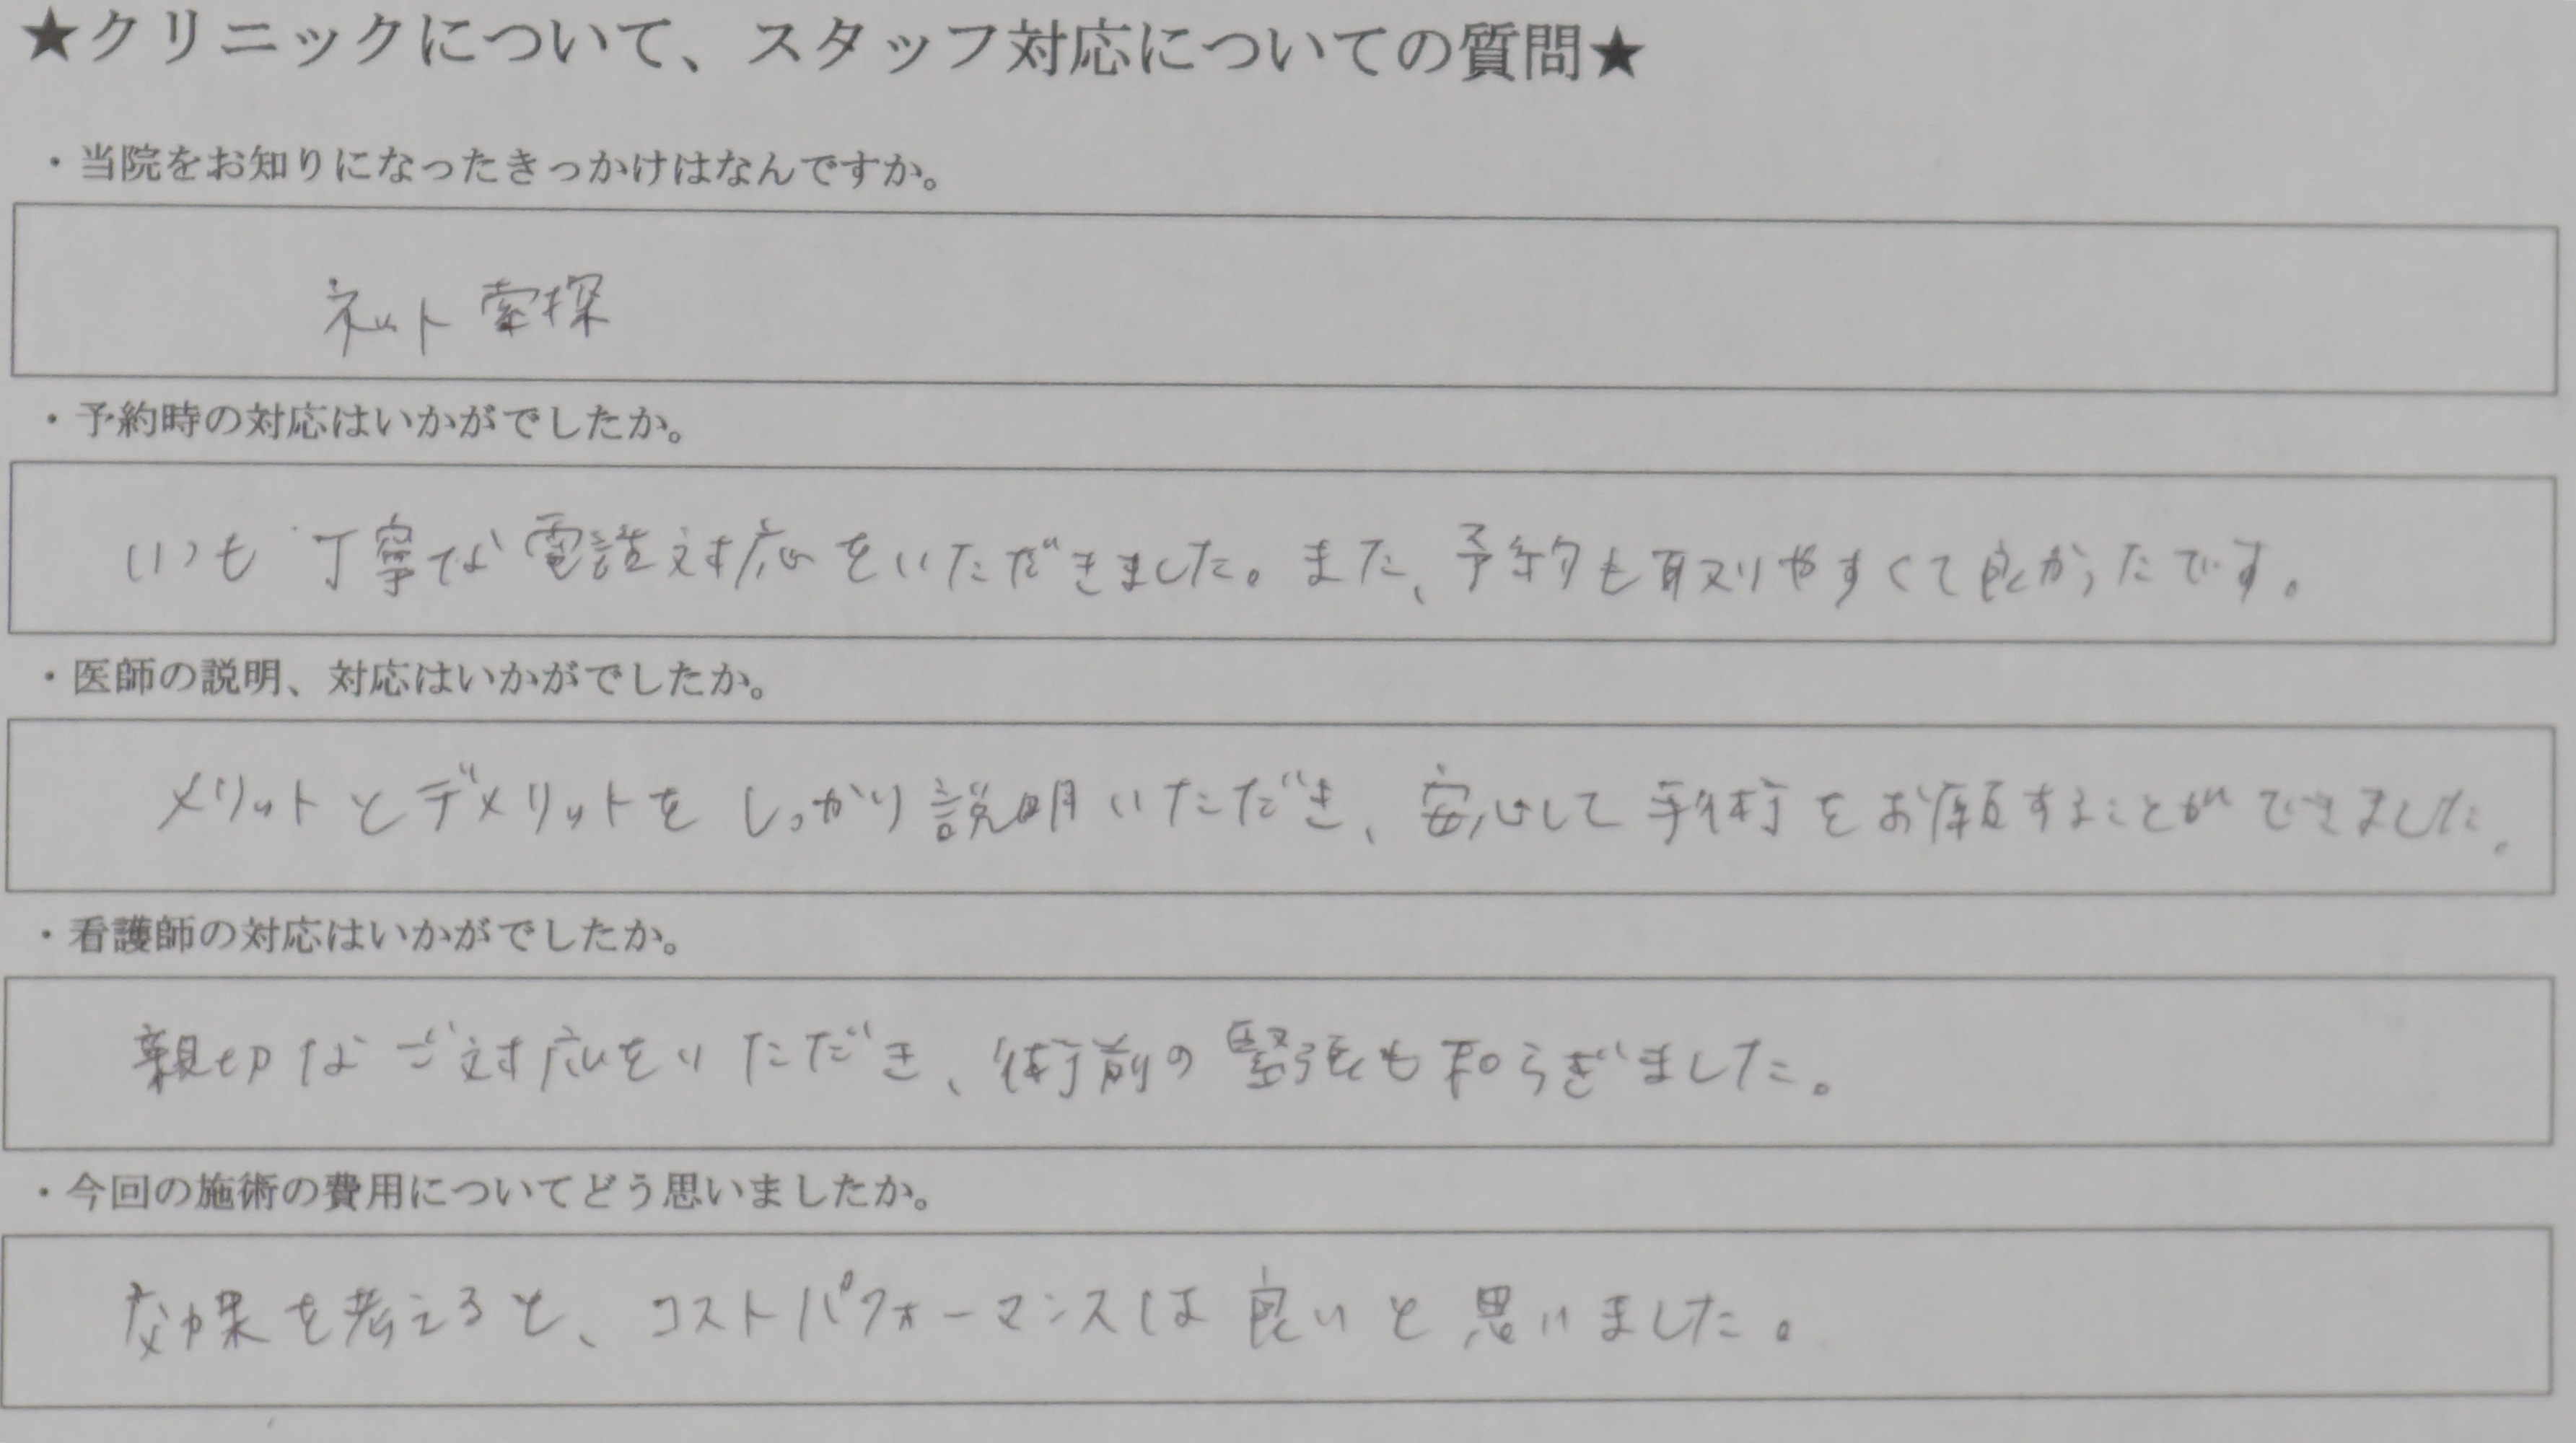 ★クリニックについて、スタッフ対応についての質問★
・当院をお知りになったきっかけはなんですか。
ネット索探
・予約時の対応はいかがでしたか。
いつも丁寧な電話対応をいただきました。また、予約も取りやすくて良かったです。
・医師の説明、対応はいかがでしたか。
メリットとデメリットをしっかり説明いただき、安心して手術をお願することができました。
・看護師の対応はいかがでしたか。
親切なご対応をいただき、術前の緊張も和らぎました。
・今回の施術の費用についてどう思いましたか。
効果を考えると、コストパフォーマンスは良いと思いました。